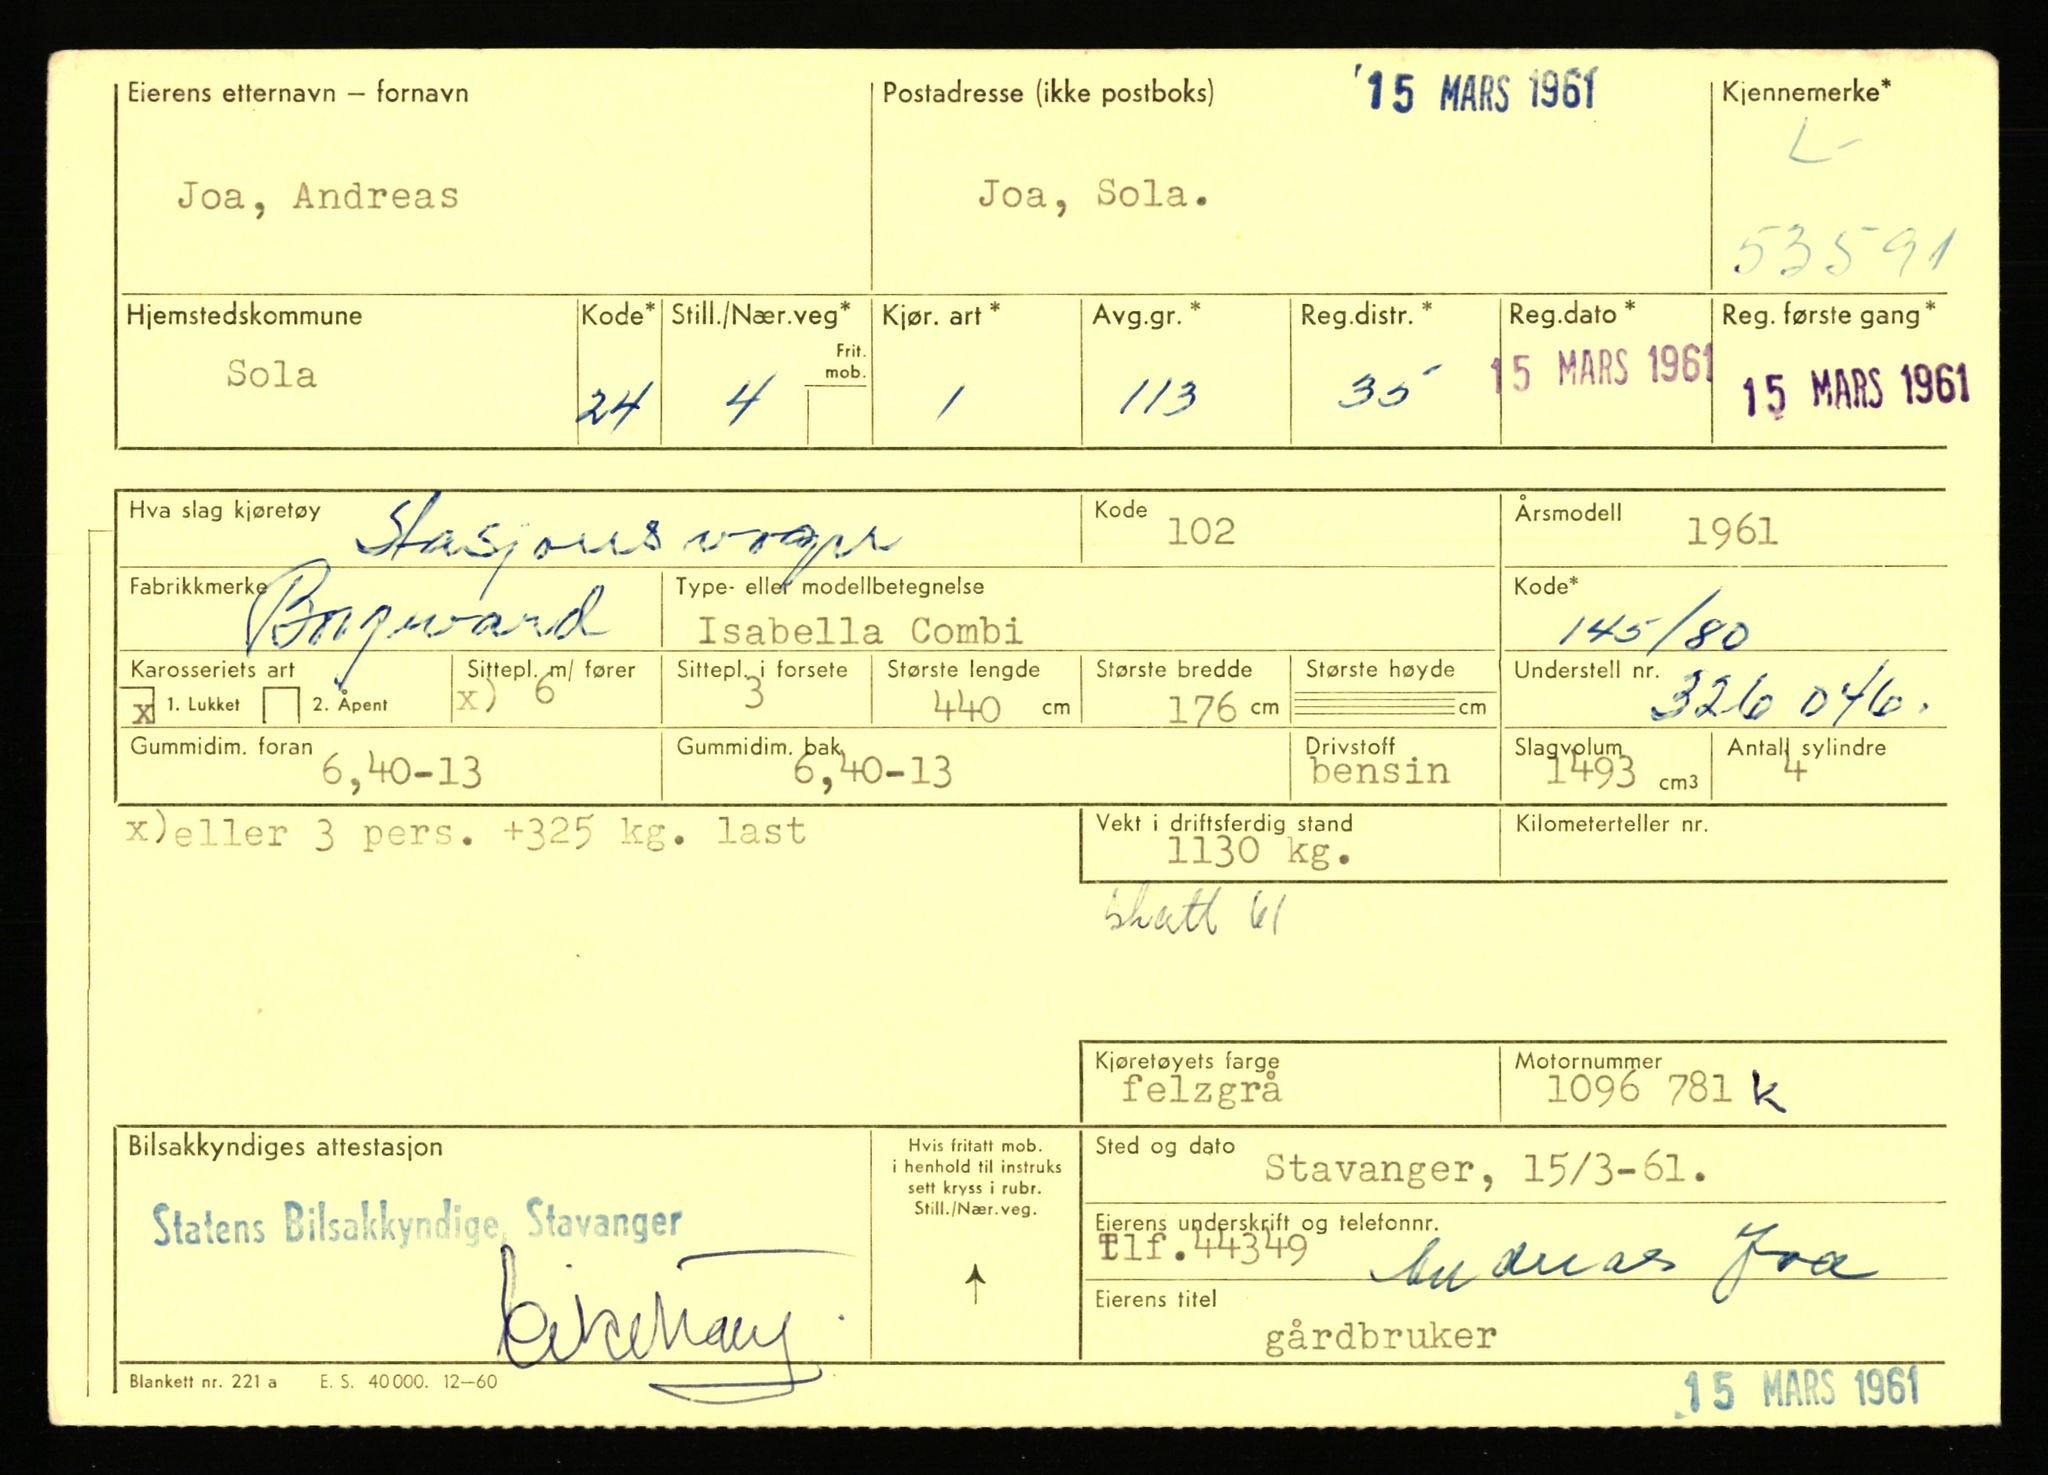 Eierens etternavn — fornavn
Postadresse (ikke postboks)
15 MARS 1961
Kjennemerke*
L-
Joa, Andreas
Joa, Sola.
53591
Hjemstedskommune
Kode*
Still./Nær.veg*
Kjør. art *
Avg.gr. *
Reg.distr. *
Reg.dato *
Reg. første gang *
Frit. mob.
Sola
24
4
1
113
35
15 MARS 1961
15 MARS 1961
Hva slag kjøretøy
Stasjonsvogn
Kode
102
Årsmodell
1961
Fabrikkmerke
Borgward
Type- eller modellbetegnelse
Isabella Combi
Kode*
145/80
Karosseriets art
x 1. Lukket 2. Åpent
Sittepl. m/ fører
x) 6
Sittepl. i forsete
3
Største lengde
440 cm
Største bredde
176 cm
Største høyde
cm
Understell nr.
326 046.
Gummidim. foran
6,40-13
Gummidim. bak
6,40-13
Drivstoff
bensin
Slagvolum
1493 cm3
Antall sylindre
4
x)eller 3 pers. +325 kg. last
Vekt i driftsferdig stand
1130 kg.
Kilometerteller nr.
skatt 61
Kjøretøyets farge
felzgrå
Motornummer
1096 781 k
Bilsakkyndiges attestasjon
Statens Bilsakkyndige, Stavanger
Hvis fritatt mob.
i henhold til instruks
sett kryss i rubr.
Still./Nær.veg.
Sted og dato
Stavanger, 15/3-61.
Eierens underskrift og telefonnr.
Tlf.44349
Andreas Joa
Eierens titel
gårdbruker
Blankett nr. 221 a E. S. 40 000. 12—60
15 MARS 1961